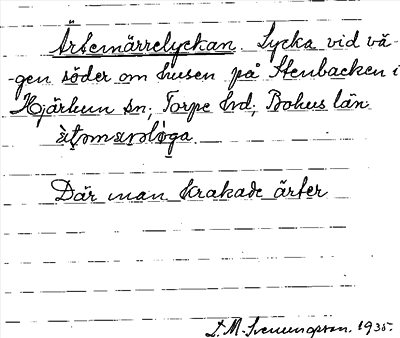 Ärtemärrelyckan. Lycka vid vä-
-gen söder om husen på Stenbacken i
Hjärtum sn; Torpe hd; Bohus län.
Där man krakade ärter
D. M. Svenungsson. 1935.